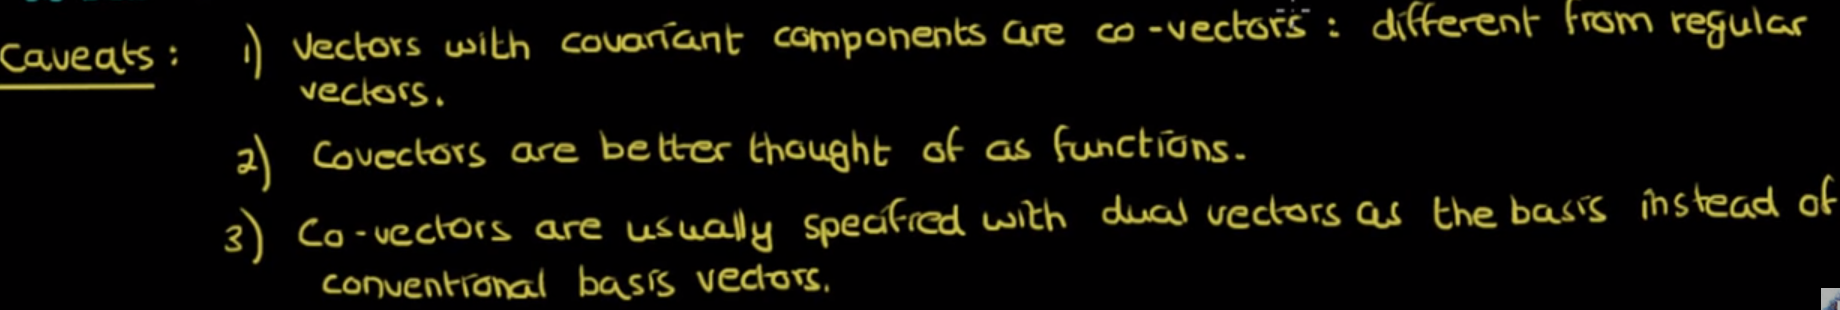 Caveats: 1) Vectors with covariant components are co-vectors: different from regular
vectors.
2) Covectors are better thought of as functions.
3) Co-vectors are usually specified with dual vectors as the basis instead of
conventional basis vectors.